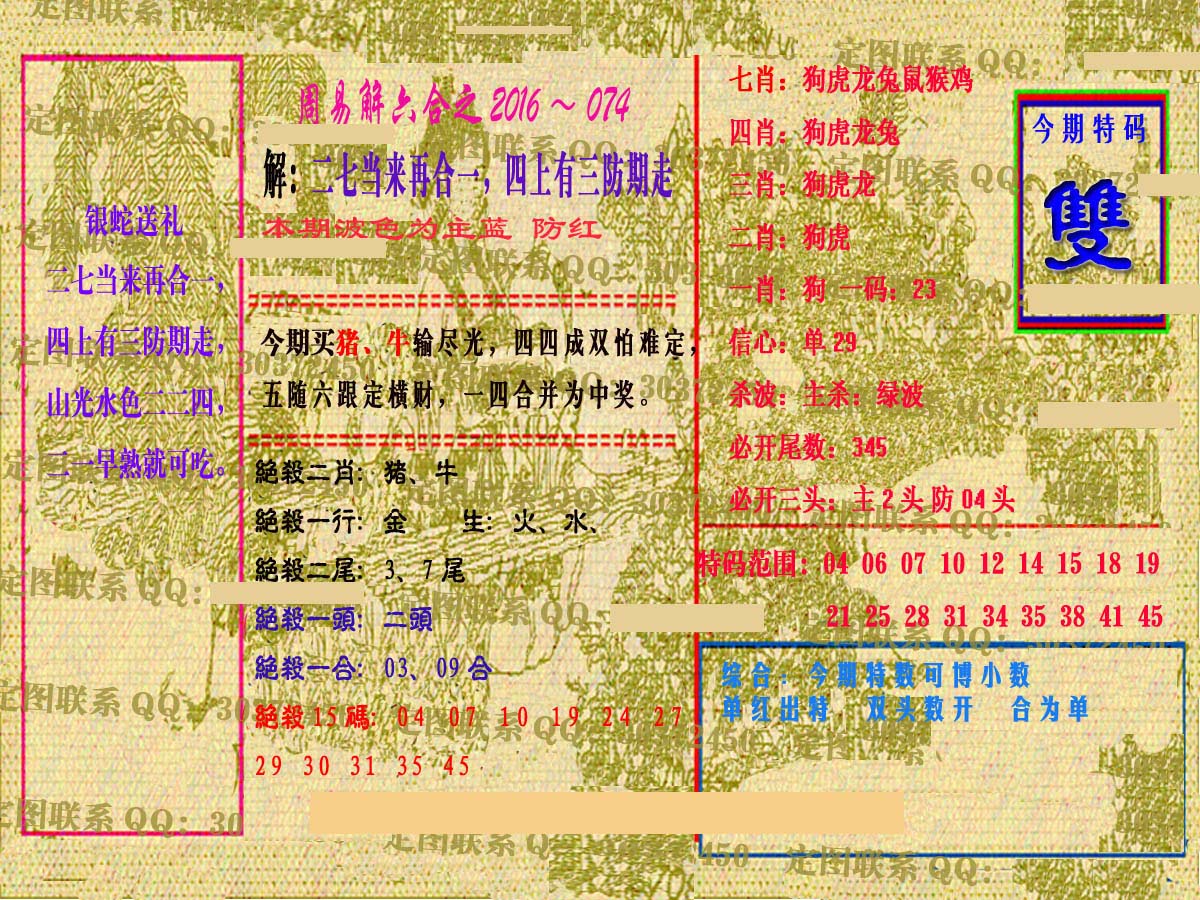 周易解六合之 2016～074
解：二七当来再合一，四上有三防期走
本期波色为主蓝 防红
银蛇送礼
二七当来再合一，
四上有三防期走，
山光水色二二四，
三一早熟就可吃。
今期买猪、牛输尽光，四四成双怕难定，
五随六跟定横财，一四合并为中奖。
絕殺二肖：猪、牛
絕殺一行：金 生：火、水、
絕殺二尾：3、7 尾
絕殺一頭：二頭
絕殺一合：03、09 合
絕殺 15 碼：04 07 10 19 24 27
29 30 31 35 45
七肖：狗虎龙兔鼠猴鸡
四肖：狗虎龙兔
三肖：狗虎龙
二肖：狗虎
一肖：狗 一码：23
信心：单 29
杀波：主杀：绿波
必开尾数：345
必开三头：主 2 头 防 04 头
今期特码
雙
特码范围：04 06 07 10 12 14 15 18 19
21 25 28 31 34 35 38 41 45
综合：今期特数可博小数
单红出特 双头数开 合为单
定图联系 QQ：